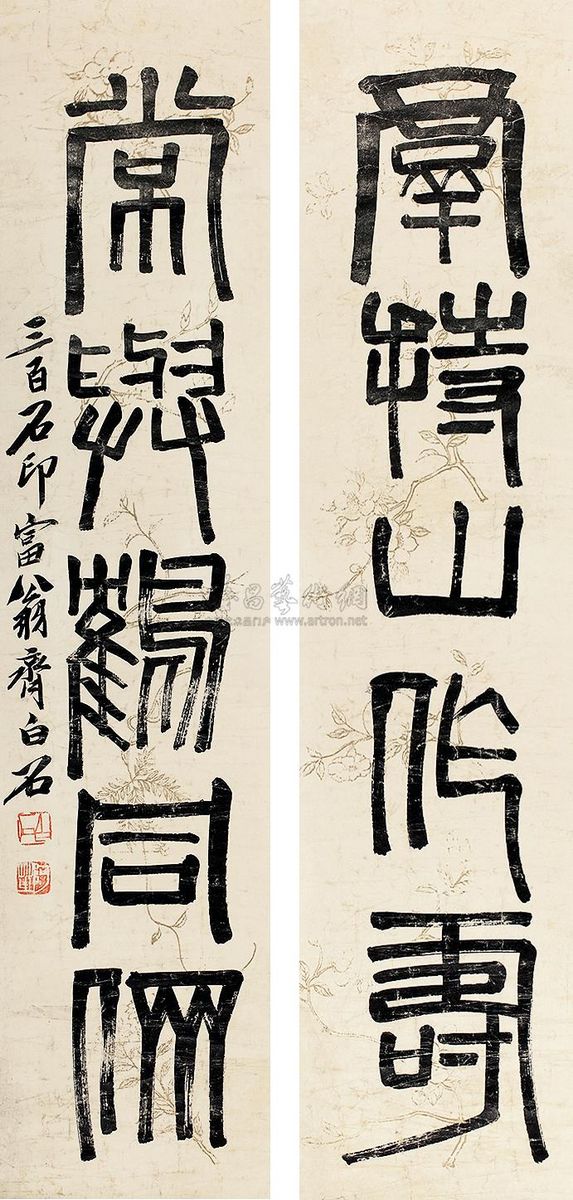 羣持山作壽
常與鶴同儕
三百石印富翁齊白石
雅昌藝術網
www.artron.net